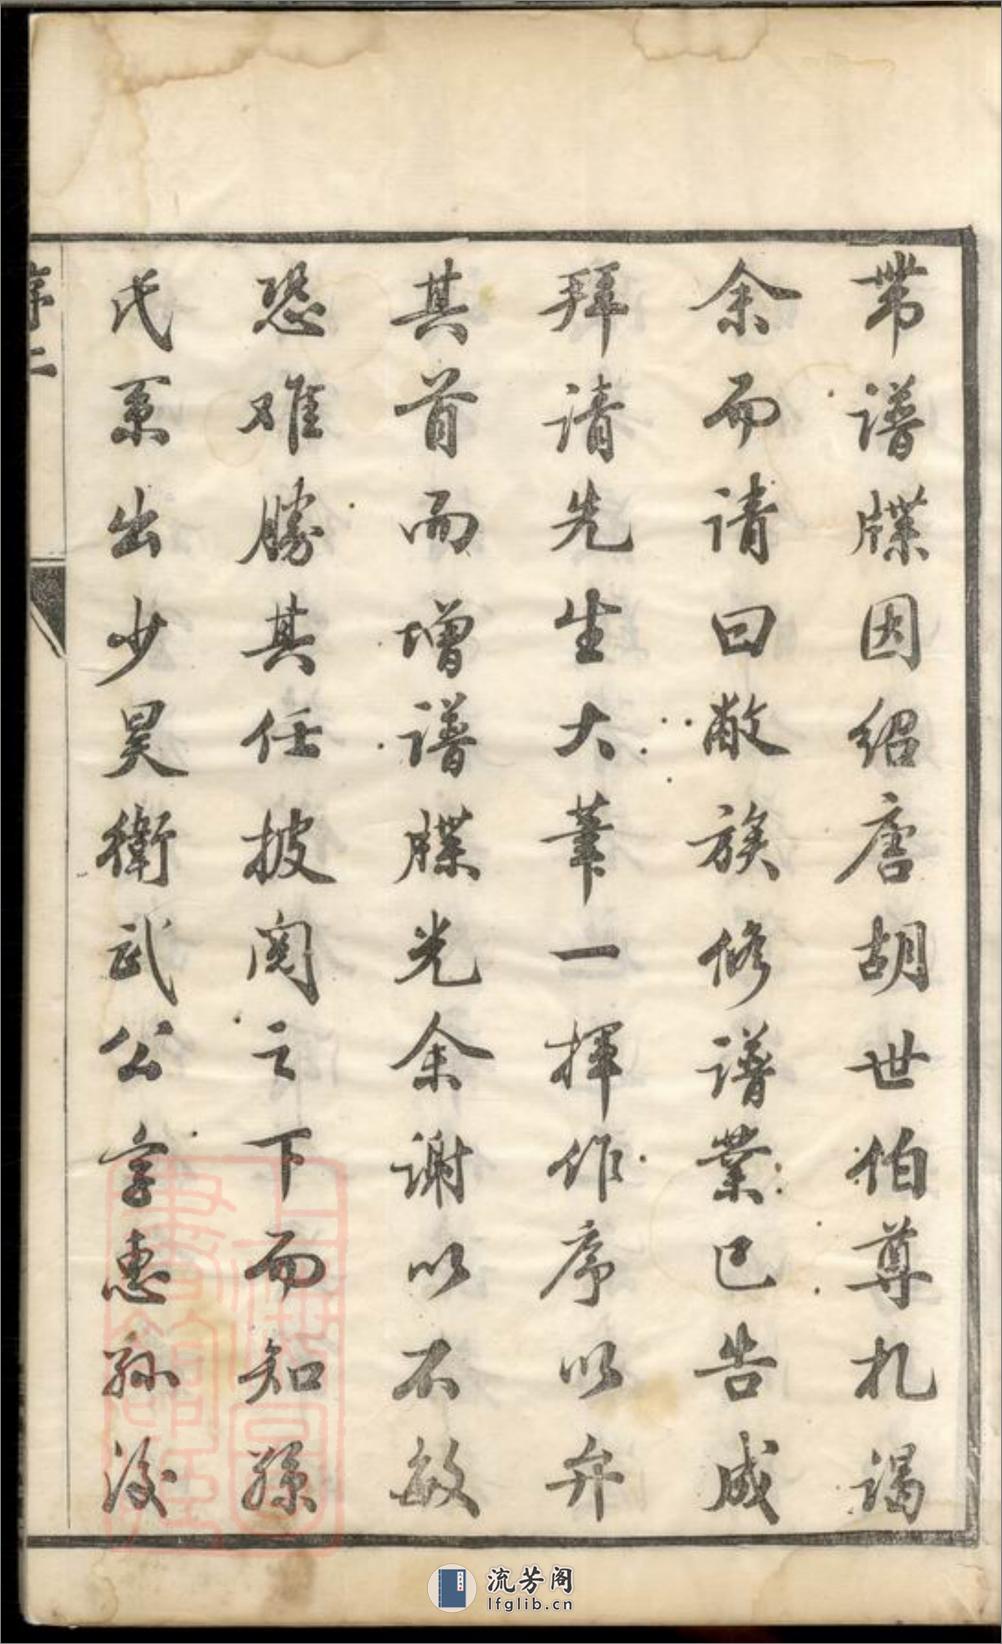 带譜牒因紹唐胡世伯尊札谒
余而请曰敝族修譜業已告成
拜请先生大筆一揮作序以弁
其首而增譜牒光余谢以不敏
恐难勝其任披阅之下而知孫
氏系出少昊衛武公字惠孫後
序二
流芳阁
lfglib.cn